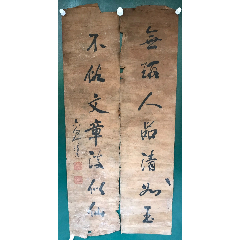 無瑕人品清如玉
不俗文章淡似仙